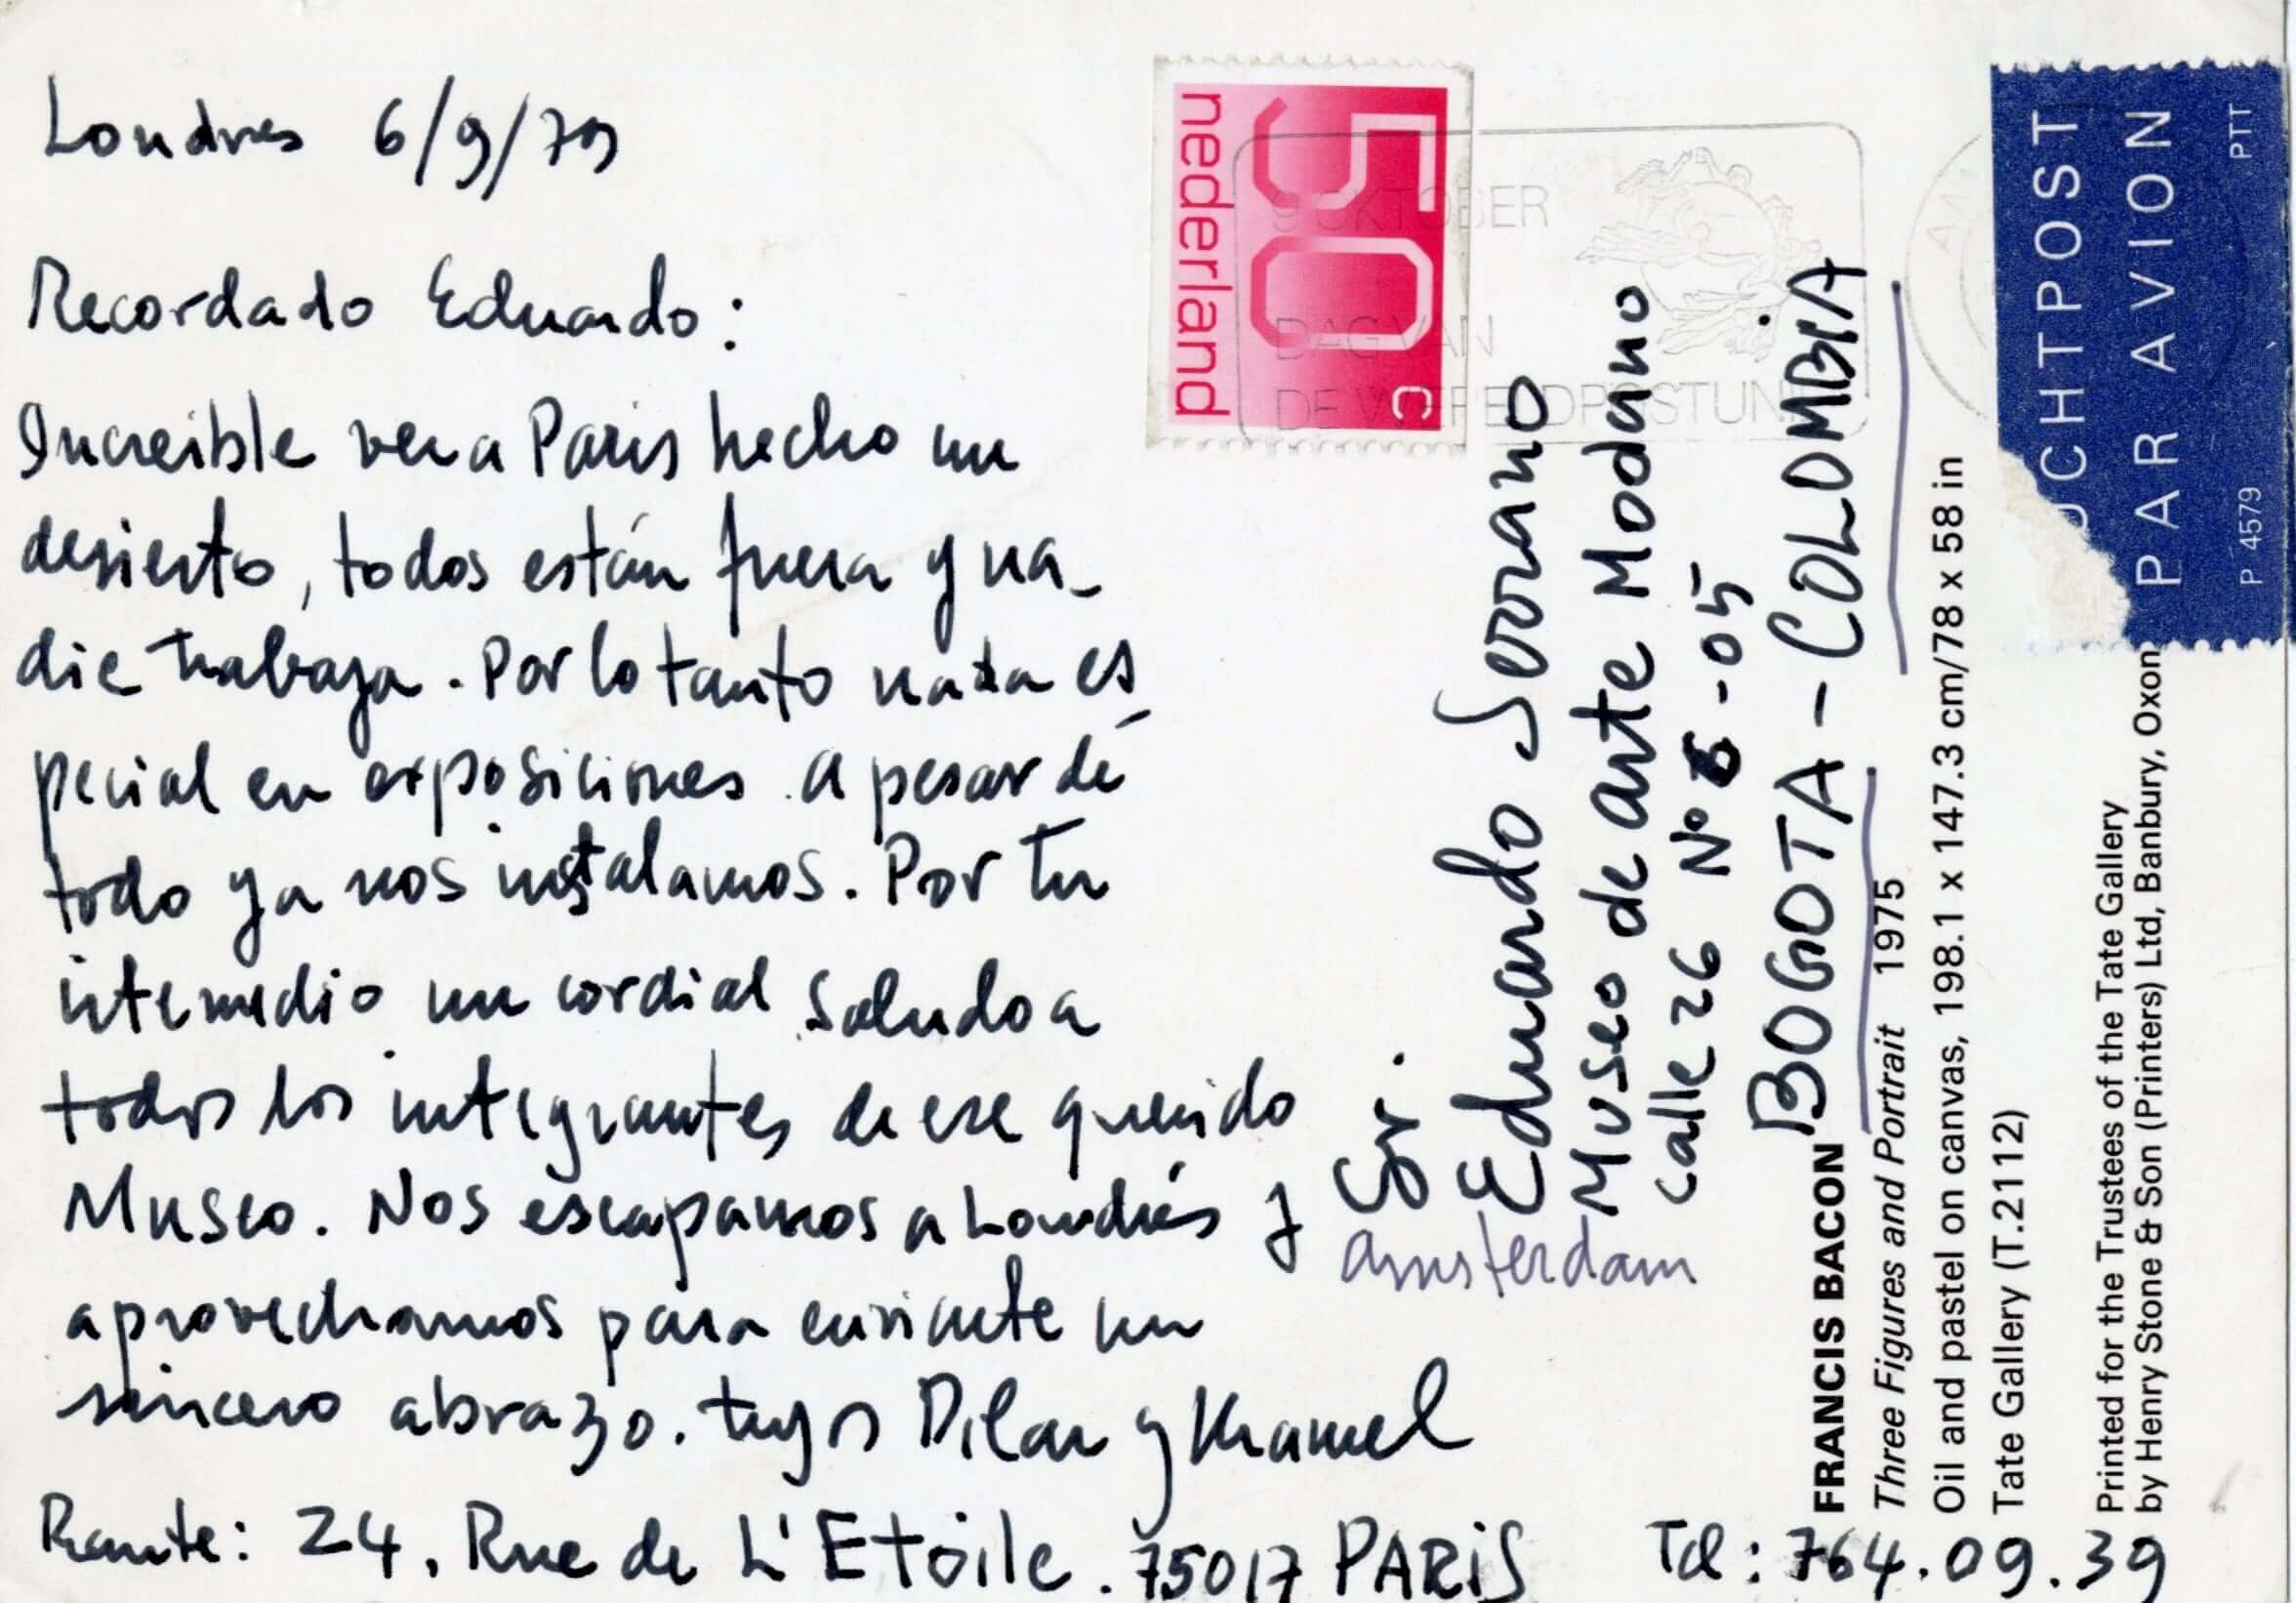 Londres 6/9/79
Recordado Eduardo:
Increible ver a Paris hecho un
desierto, todos están fuera y na-
die trabaja. Por lo tanto nada es
pecial en exposiciones. A pesar de
todo ya nos instalamos. Por tu
intermedio un cordial saludo a
todos los integrantes de ese querido
Museo. Nos escapamos a Londres y
Amsterdam
aprovechamos para enviarte un
sincero abrazo. tuyos Pilar y Kramel
Rante: 24, Rue de L'Etoile. 75017 PARIS
Tel: 764.09.39
Sr.
Eduardo Serrano
Museo de arte Moderno
Calle 26 Nº 6-05
BOGOTA - COLOMBIA
50 c
nederland
9 OKTOBER
DAG VAN
DE WERELDPOSTUNIE
LUCHTPOST
PAR AVION
P 4579 PTT
FRANCIS BACON
Three Figures and Portrait 1975
Oil and pastel on canvas, 198.1 x 147.3 cm/78 x 58 in
Tate Gallery (T.2112)
Printed for the Trustees of the Tate Gallery
by Henry Stone & Son (Printers) Ltd, Banbury, Oxon